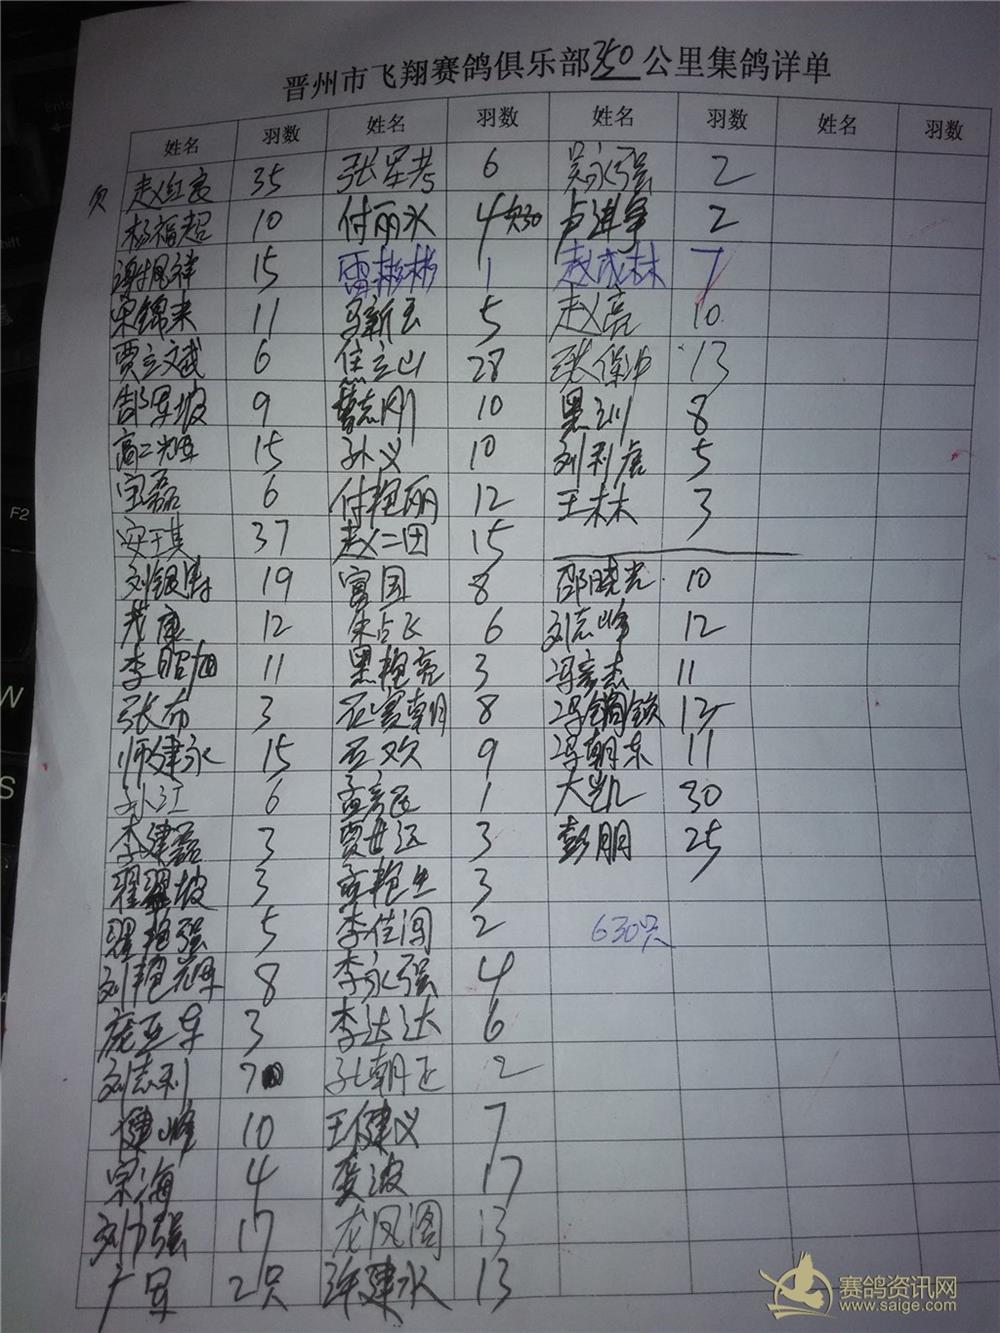 晋州市飞翔赛鸽俱乐部350公里集鸽详单
姓名 羽数 姓名 羽数 姓名 羽数 姓名 羽数
欠 赵红 35 张军 6 吴永强 2
杨福超 10 付丽永 4 欠30 卢进军 2
谢凤祥 15 雷彬彬 1 赵成林 7
宋锦来 11 马新玉 5 赵亮 10
贾立斌 6 焦立山 28 张保中 13
郜军坡 9 曹志刚 10 黑 8
高二 15 孙义 10 刘利 5
宝磊 6 付艳丽 12 王林 3
安于其 37 赵二田 15
刘银涛 19 富国 8 邵晓光 10
茂康 12 宋占飞 6 刘志峰 12
李昭旭 11 黑艳亮 3 冯彦杰 11
张布 3 石赛朝 8 冯铜锁 12
师建永 15 石欢 9 冯朝东 11
孙江 6 孟彦 1 大凯 30
李建磊 3 贾世远 3 彭朋 25
翟翠坡 3 艳生 3
翟艳强 5 李佳闯 2 630只
刘艳辉 8 李永强 4
庞亚军 3 李达达 6
刘志利 7 孔朝正 2
健峰 10 王健义 7
宗海 4 波 17
刘力强 17 龙凤阁 13
广军 2只 许建永 13
赛鸽资讯网
www.saige.com